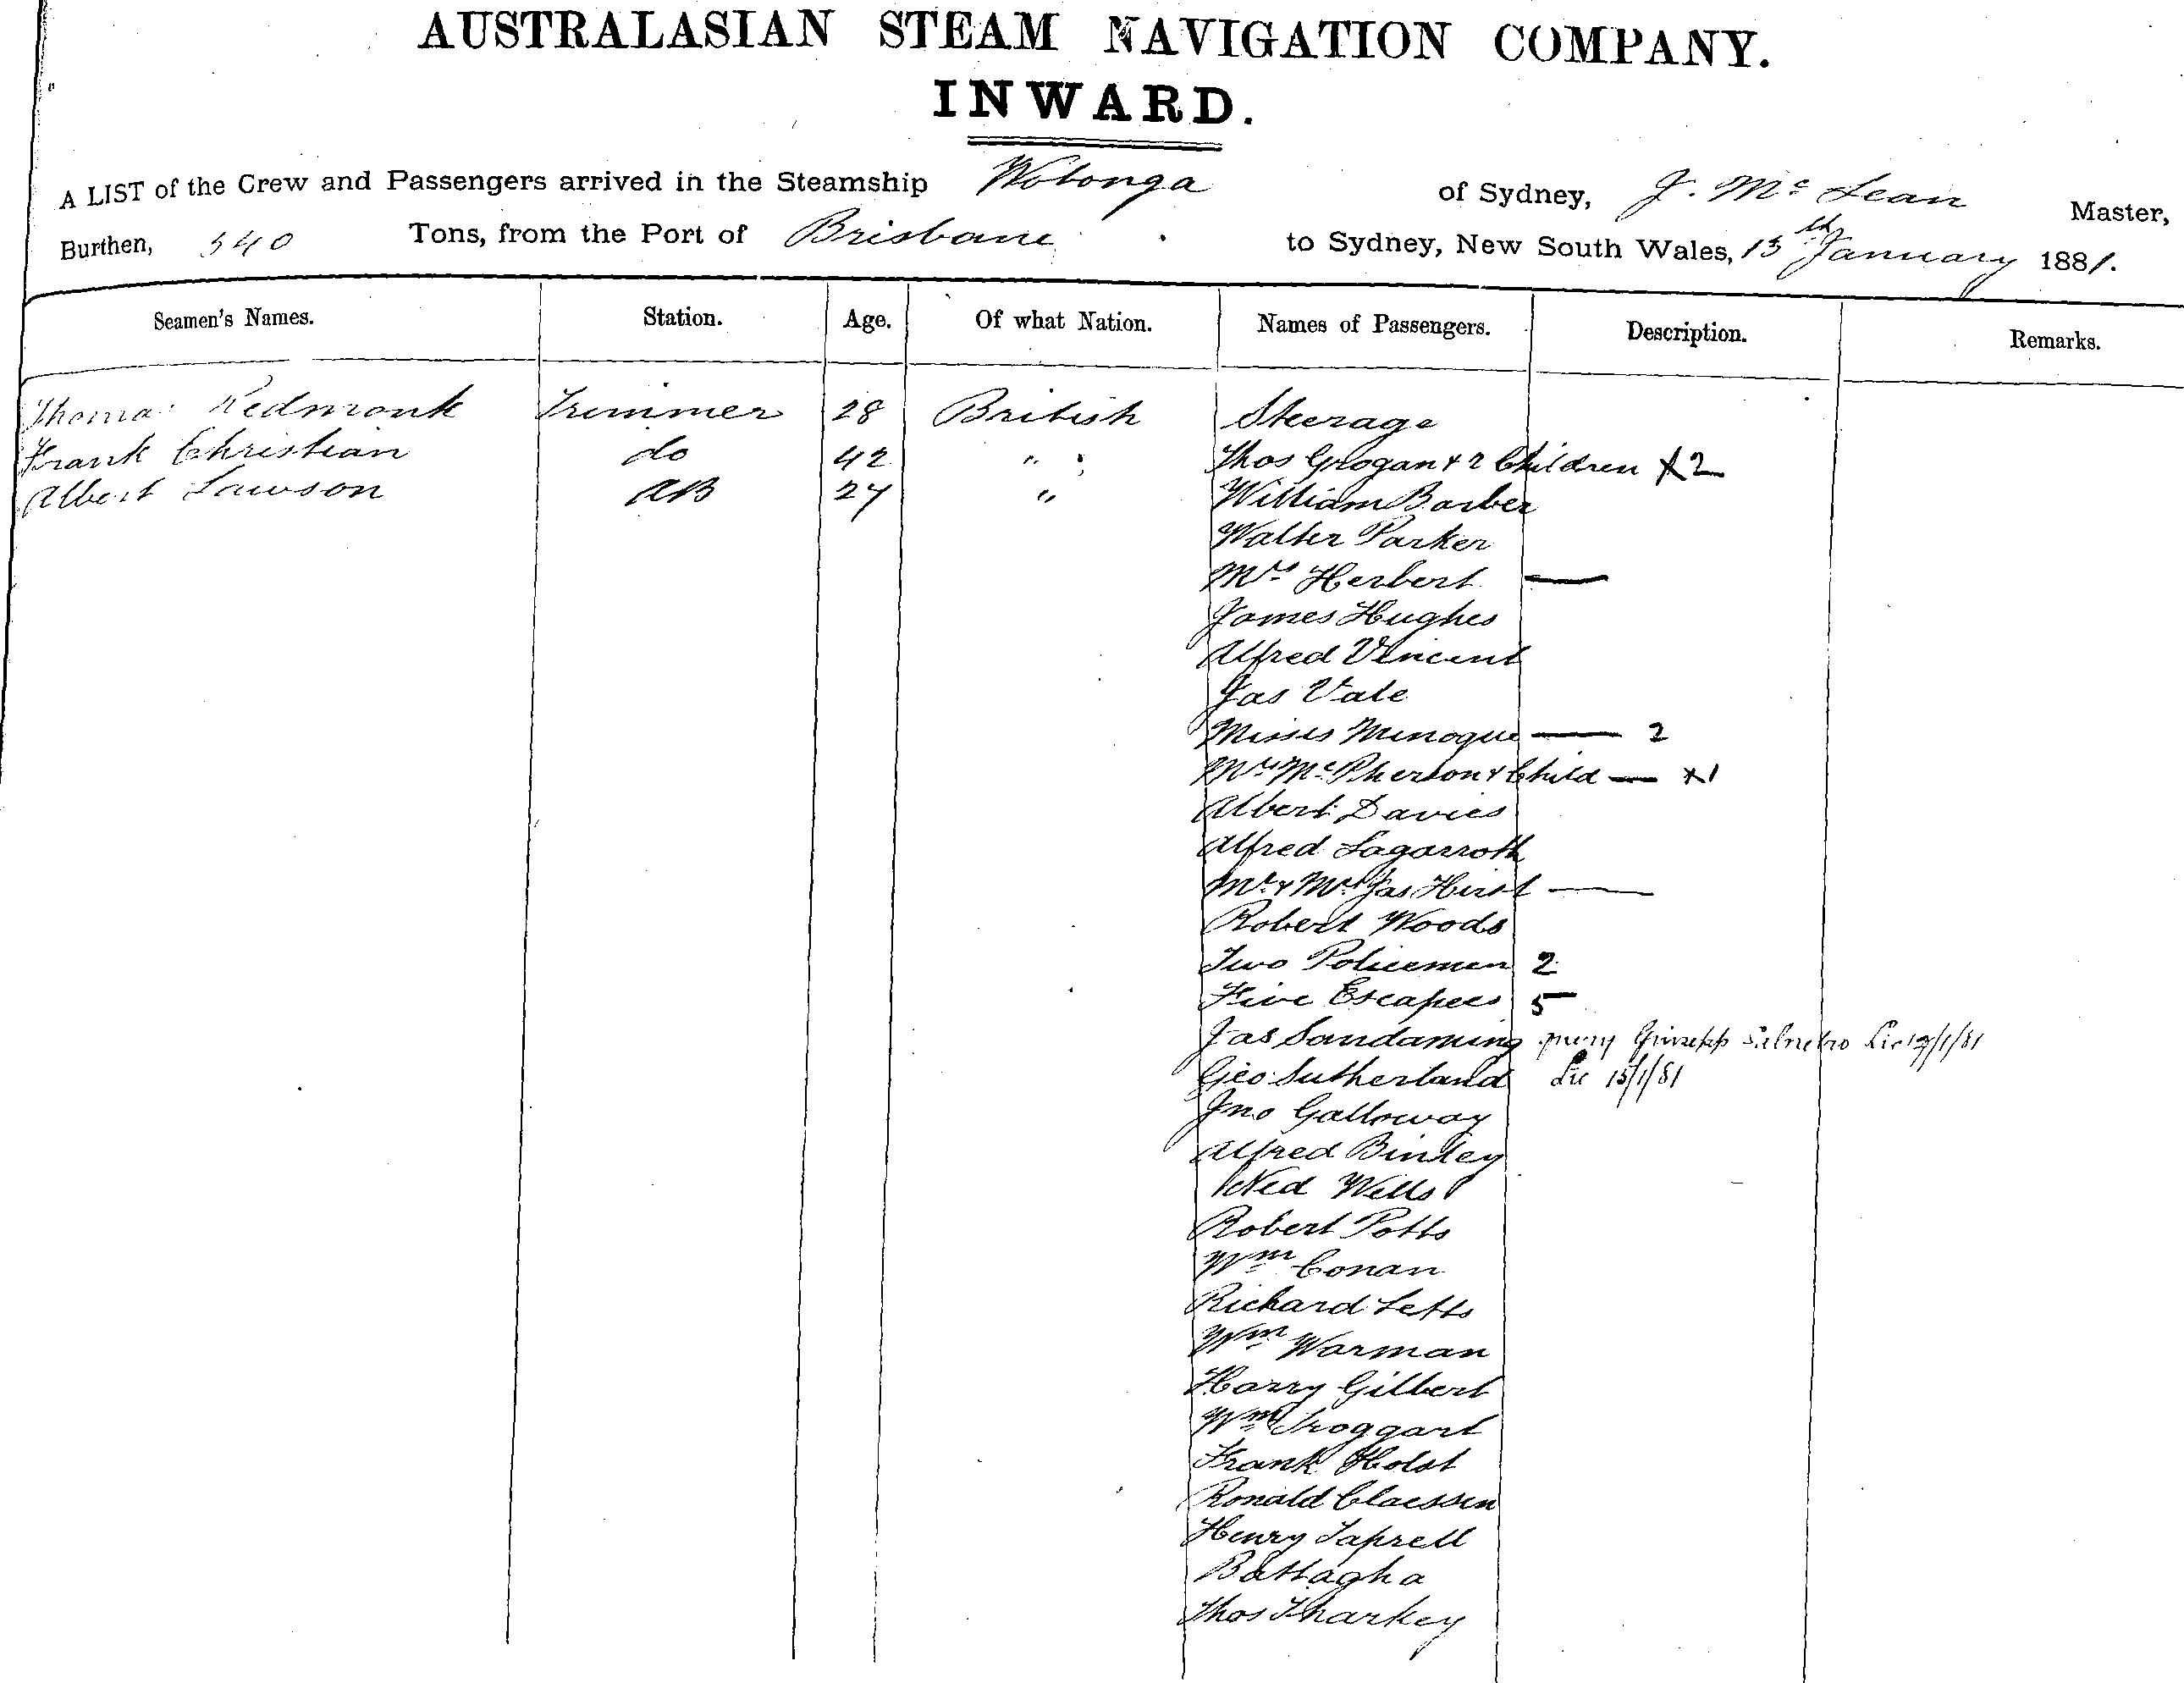 AUSTRALASIAN STEAM NAVIGATION COMPANY.
INWARD.
A LIST of the Crew and Passengers arrived in the Steamship Wotonga of Sydney, J. McLean Master,
Burthen, 540 Tons, from the Port of Brisbane to Sydney, New South Wales, 13th January 1881.
Seamen's Names. Station. Age. Of what Nation. Names of Passengers. Description. Remarks.
Thomas Redmonk Trimmer 28 British Steerage
Frank Christian do 42 " Thos Grogan & 2 Children X2
Albert Lawson AB 24 " William Barber
Walter Parker
Mrs Herbert —
James Hughes
Alfred Vincent
Jas Vale
Misses Minogue — 2
Mrs McPherson & Child — X1
Albert Davies
Alfred Lagarroth
Mr & Mrs Jas Hirst —
Robert Woods
Two Policemen 2
Five Escapees 5
Jas Sandaming
Geo Sutherland 15/1/81
Jno Galloway
Alfred Binley
Ned Wells
Robert Potts
Wm Conan
Richard Letts
Wm Warman
Harry Gilbert
Wm Froggart
Frank Holst
Ronald Claessen
Henry Taprell
Battagha
Thos Sharkey